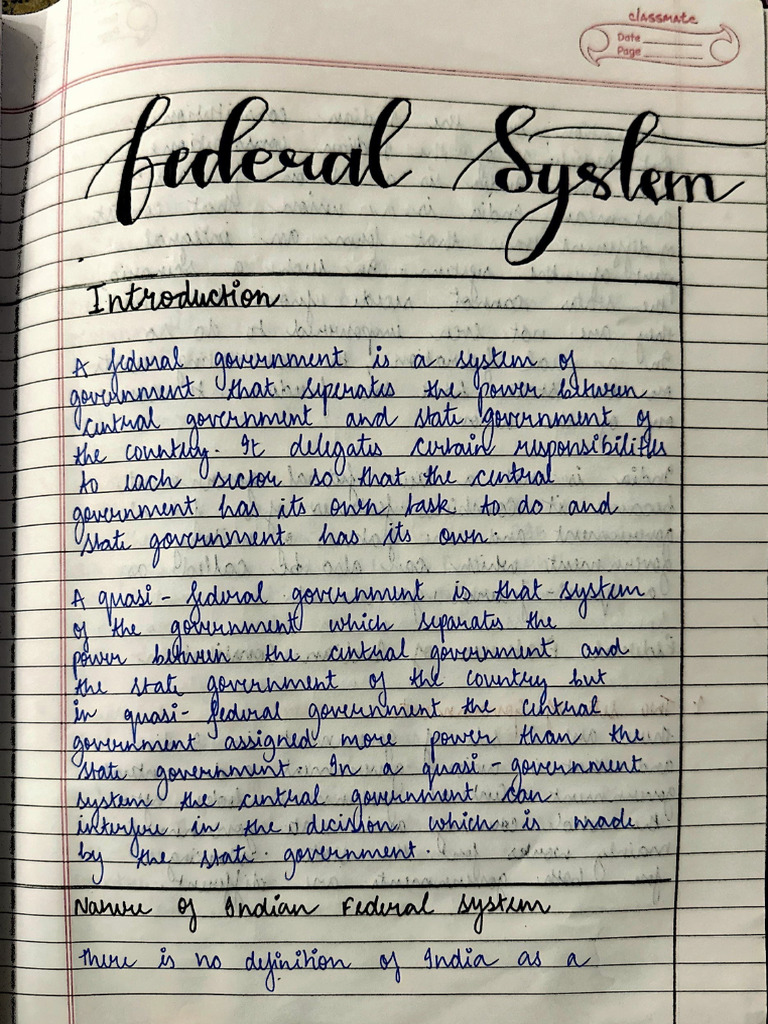 classmate
Date
Page
Federal System
Introduction
A federal government is a system of
government that siperates the power between
central government and state government of
the country. It delegates certain responsibilities
to each sector so that the central
government has its own task to do and
state government has its own
A quasi - federal government is that system
of the government which separates the
power between the central government and
the state government of the country but
in quasi - federal government the central
government assigned more power than the
state government. In a quasi - government
system the central government can
interfere in the decision which is made
by the state government.
Nature of Indian Federal System
there is no definition of India as a